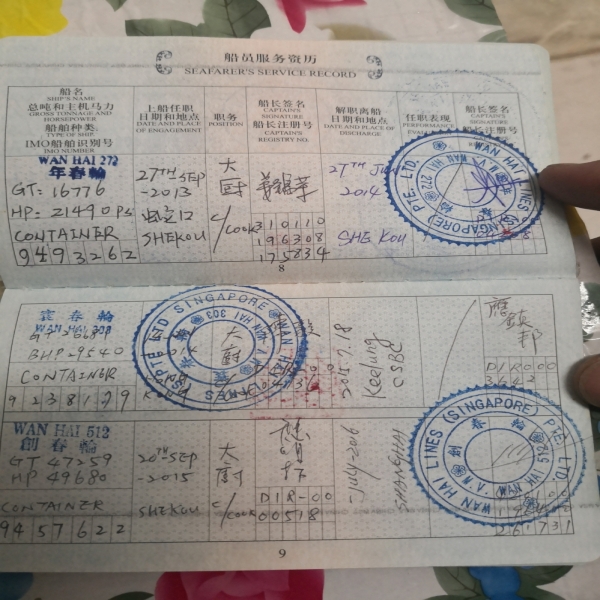 船员服务资历
SEAFARER'S SERVICE RECORD
船名
SHIP'S NAME
总吨和主机马力
GROSS TONNAGE AND
HORSEPOWER
船舶种类.
TYPE OF SHIP.
IMO船舶识别号
IMO NUMBER
上船任职
日期和地点
DATE AND PLACE
OF ENGAGEMENT
职务
POSITION
船长签名
CAPTAIN'S
SIGNATURE
船长注册号
CAPTAIN'S
REGISTRY NO.
解职离船
日期和地点
DATE AND PLACE OF
DISCHARGE
任职表现
船长签名
CAPTAIN'S
SIGNATURE
船长注册号
WAN HAI 272
年春輪
GT: 16776
HP: 21490 PS
CONTAINER
9493262
27TH SEP
-2013
蛇口
SHEKOU
大
厨
C/COOK
310110
196308
175834
27TH JUN
2014
SHE KOU
WAN HAI LINES (SINGAPORE) PTE. LTD.
M.V. WAN HAI 272
8
寰春輪
CONTAINER
9238179
大
厨
WAN HAI LINES
SINGAPORE
PTE LTD
M.V. WAN HAI 303
2015.7.18
Keelung
CSBC
WAN HAI 512
創春輪
GT 47259
HP 49680
CONTAINER
9457622
20TH-SEP
-2015
SHEKOU
大
廚
C/COOK
DIR-00
00518
July-2016
SHANGHAI
WAN HAI LINES (SINGAPORE) PTE. LTD.
9